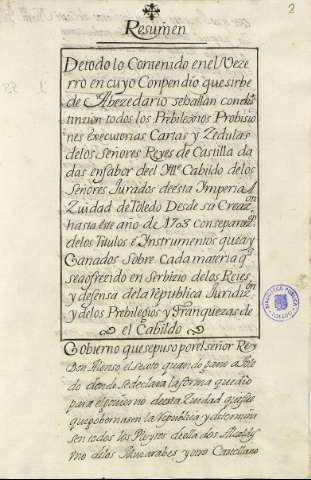 2
Resumen
De todo lo Contenido en el Veze
rro en cuyo Conpendio que sirbe
de Abezedario se ballan con dis
tinzion todos los Prebilexios Probisio
nes executorias Cartas y Zedulas
de los Señores Reyes de Castilla da
das en fabor de el Ille Cabildo de los
Señores Jurados de esta Imperial
Ziudad de Toledo Desde su Creazon
hasta este año de 1708 con separazon
de los Titulos e Instrumentos que ay
Ganados Sobre Cada materia q
se a ofrezido en Serbizio de los Reies
y defensa de la Republica Juridizon
y de los Prebilegios y Franquezas de
el Cabildo
Gobierno que se puso por el señor Rey
Don Alonso el sexto quando gano a Tole
do donde se declara la forma que dio
para el gobierno de esta Ziudad quiso
que gobernasen la Republica y determina
sen todos los Pleytos de ella dos Alcaldes
Uno de los Muzarabes y otro Castellano
BIBLIOTECA PUBLICA
TOLEDO